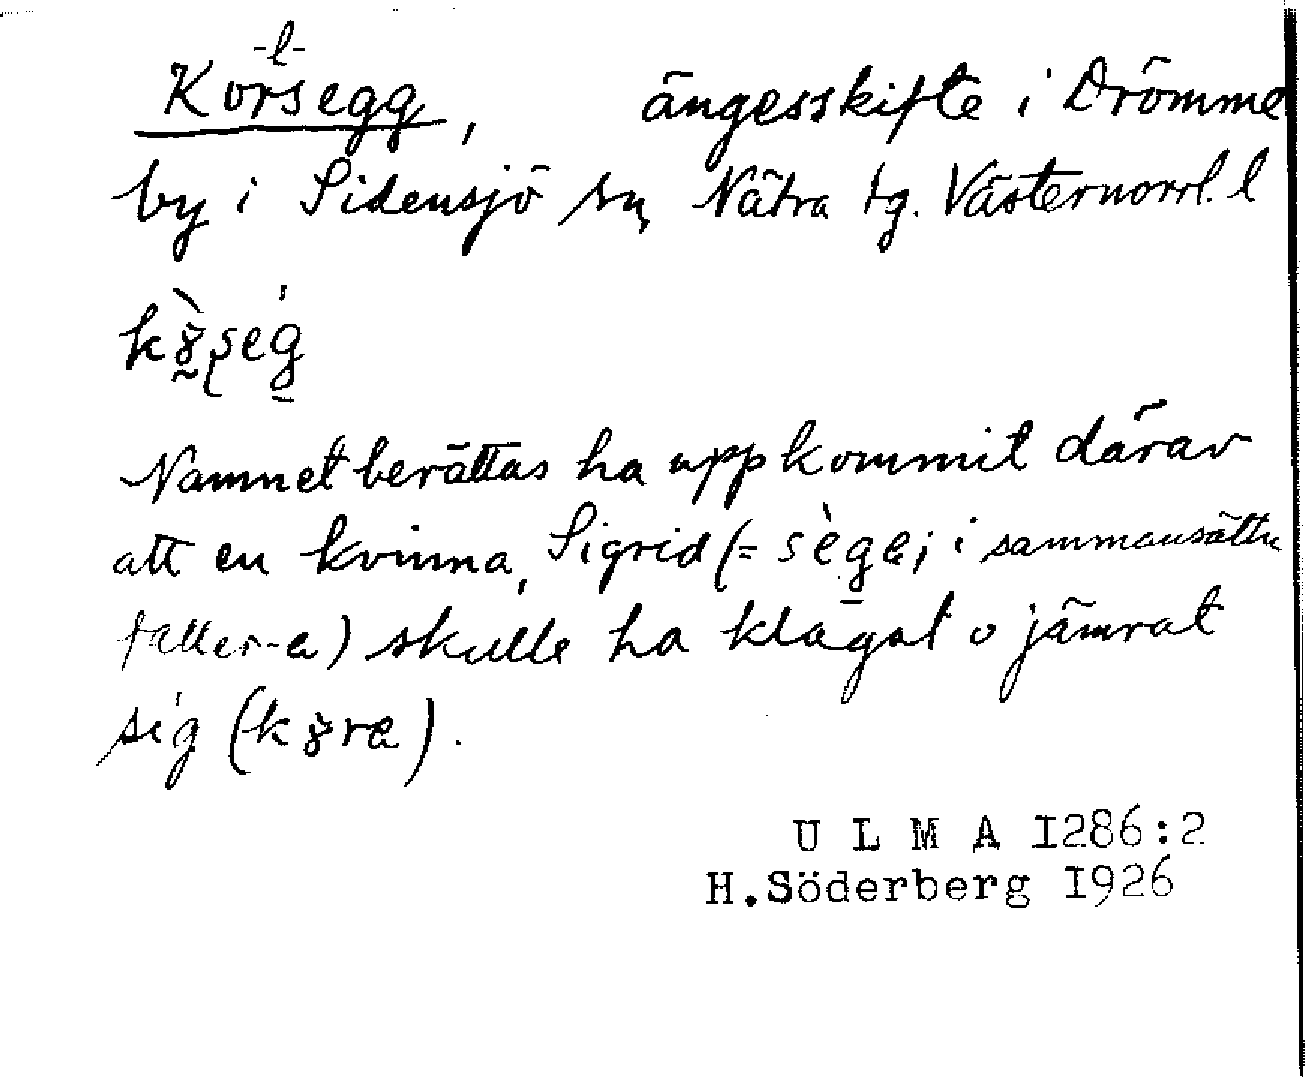 -l-
Korsegg, ängesskifte i Drömme
by i Sidensjö sn, Nätra tg. Västernorrl. l
Namnet berättas ha uppkommit därav
att en kvinna, Sigrid (= sègɐ; i sammansättn
faller -a) skulle ha klagat o jämrat
sig (k8ra).
U L M A I286:2
H.Söderberg I926